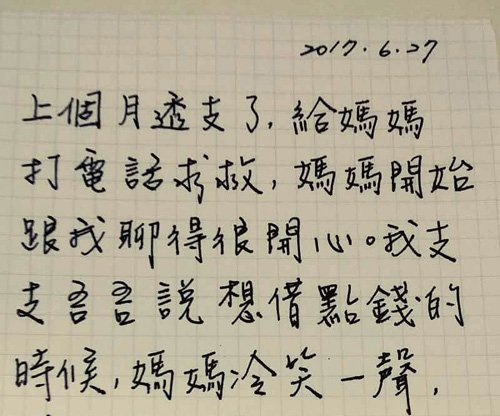 2017.6.27
上個月透支了,給媽媽
打電話求救,媽媽開始
跟我聊得很開心。我支
支吾吾說想借點錢的
時候,媽媽冷笑一聲,